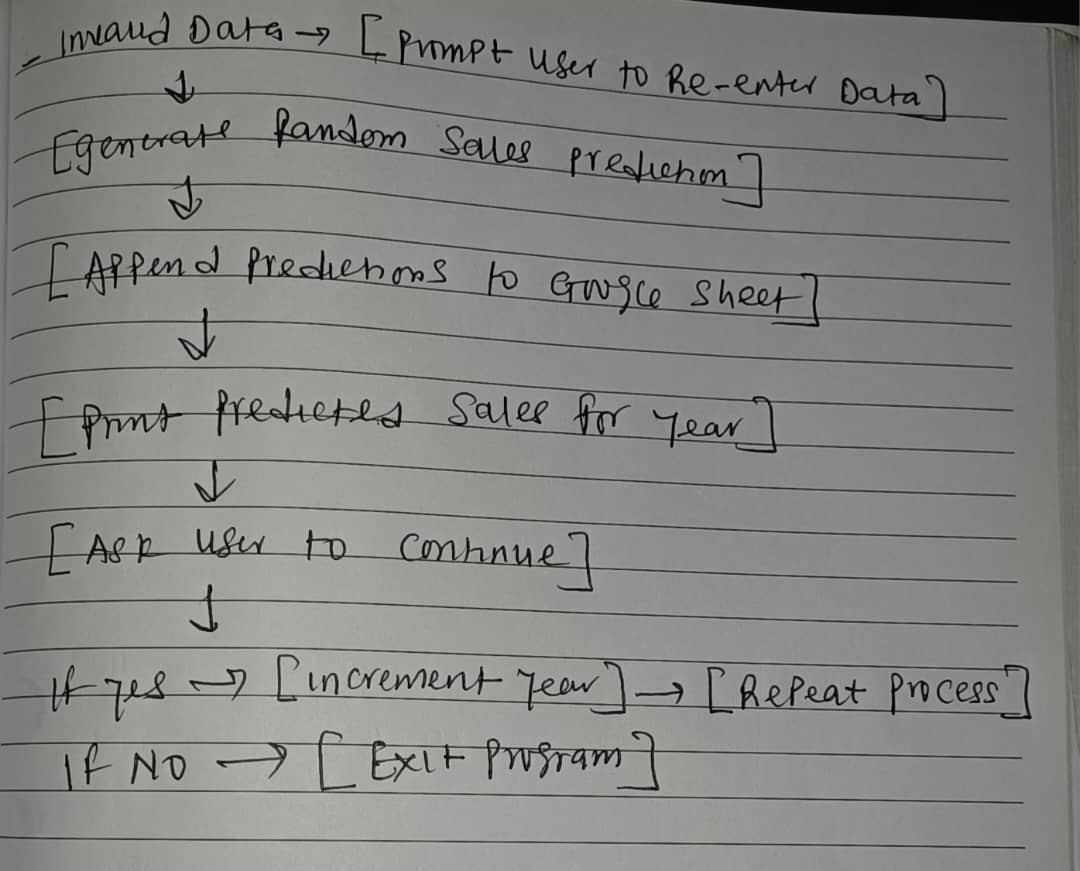 - Invalid Data → [Prompt User to Re-enter Data]
↓
[generate Random Sales prediction]
↓
[Append Predictions to Google Sheet]
↓
[Print Predicted Sales for year]
↓
[Ask user to continue]
↓
If yes → [increment year] → [Repeat Process]
If NO → [Exit Program]